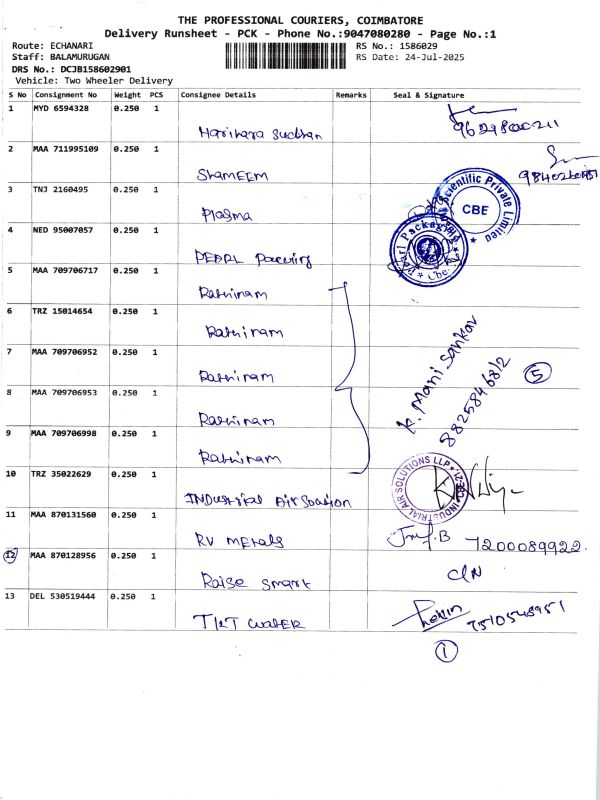 THE PROFESSIONAL COURIERS, COIMBATORE
Delivery Runsheet - PCK - Phone No.:9047080280 - Page No.:1
Route: ECHANARI
RS No.: 1586029
Staff: BALAMURUGAN
RS Date: 24-Jul-2025
DRS No.: DCJB158602901
Vehicle: Two Wheeler Delivery
S No Consignment No Weight PCS Consignee Details Remarks Seal & Signature
1 MYD 6594328 0.250 1
Harihara Sudhan
2 MAA 711995109 0.250 1
ShaMEEM
3 TNJ 2160495 0.250 1
Plasma
Scientific Private Limited
CBE
4 NED 95007057 0.250 1
PEARL Packing
Pearl Packaging
Cbe
5 MAA 709706717 0.250 1
Rathinam
6 TRZ 15014654 0.250 1
Rathinam
7 MAA 709706952 0.250 1
Rathinam
K. Mani Sankar
8825846812
5
8 MAA 709706953 0.250 1
Rathinam
9 MAA 709706998 0.250 1
Rathinam
10 TRZ 35022629 0.250 1
INDUSTRIAL AIR Soation
INDUSTRIAL AIR SOLUTIONS LLP
11 MAA 870131560 0.250 1
RV METALS
7200089922.
12 MAA 870128956 0.250 1
Raise smart
C/N
13 DEL 530519444 0.250 1
TINT WATER
7510548951
1